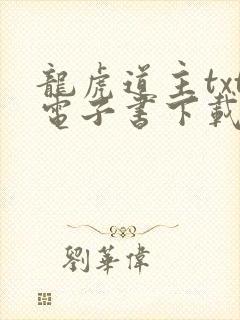 龍虎道主txt
電子書下載
劉華偉